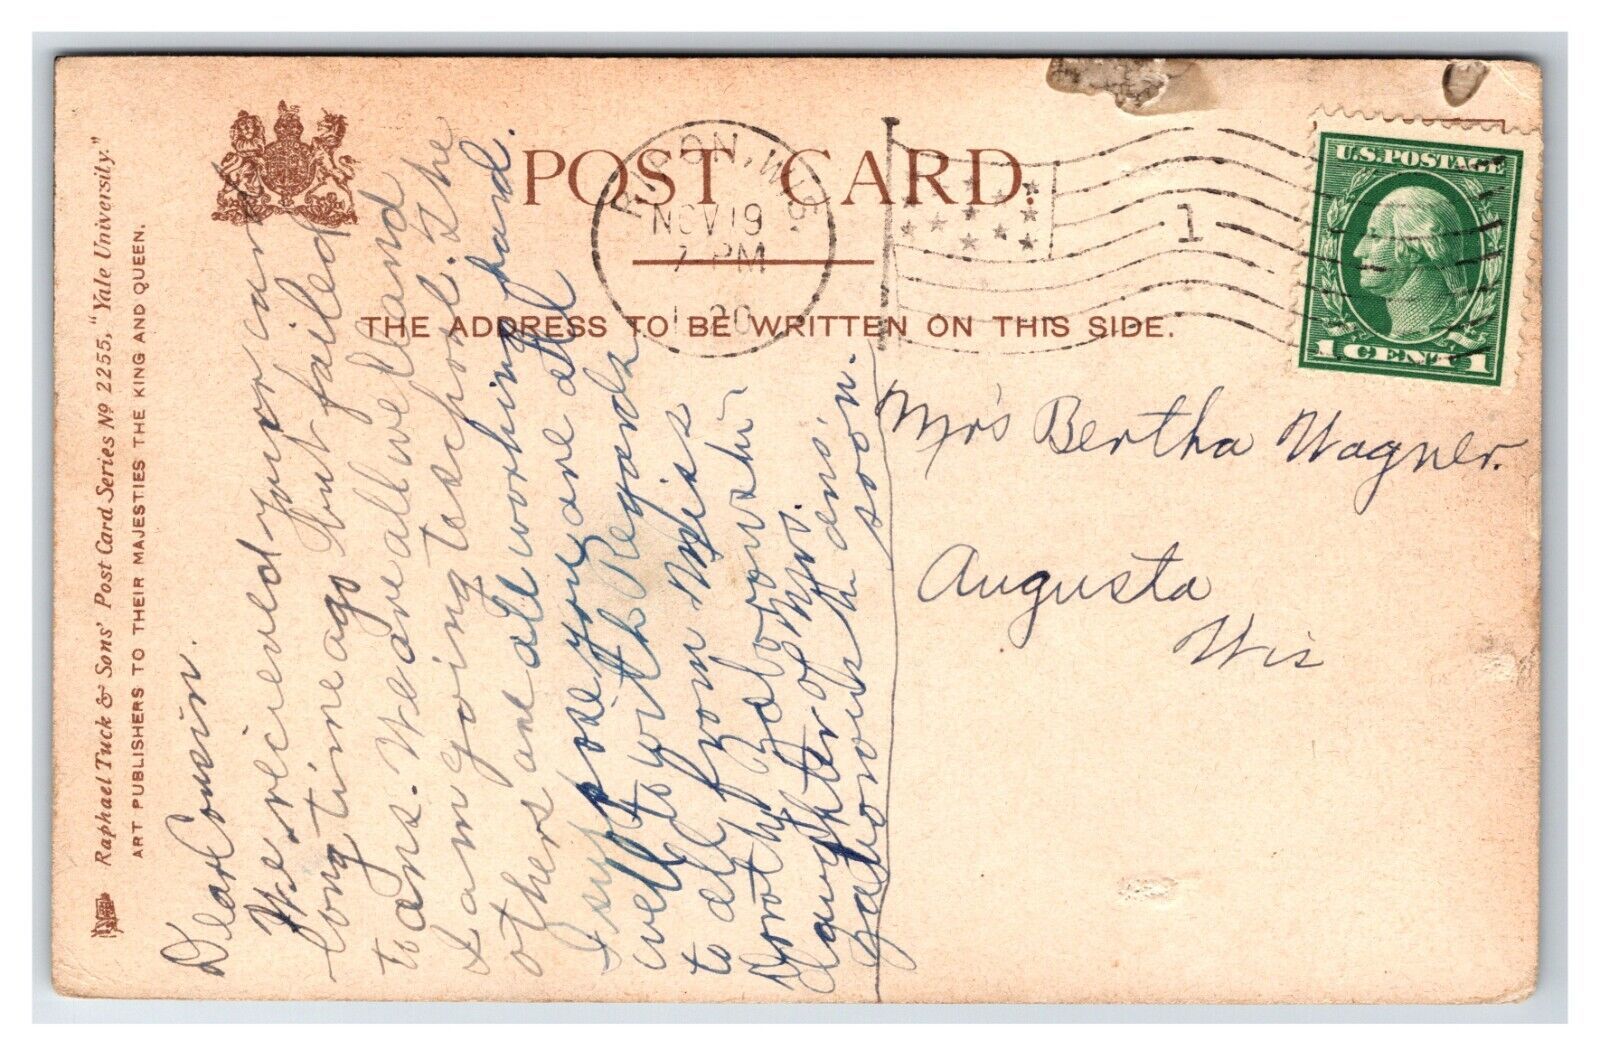 Raphael Tuck & Sons' Post Card Series Nº 2255, "Yale University."
ART PUBLISHERS TO THEIR MAJESTIES THE KING AND QUEEN.
POST CARD.
THE ADDRESS TO BE WRITTEN ON THIS SIDE.
WIS.
NOV 19
7-PM
1
U.S. POSTAGE
1 CENT 1
Dear Cousin.
We recieved your card
long time ago but failed
to ans. We are all well and
I am going to school. The
others are all working hard.
I suppose you are all
well to with Regards
to all from Miss
Dorothy
daughter of Mrs.
ans.
soon.
Mrs Bertha Wagner.
Augusta
Wis